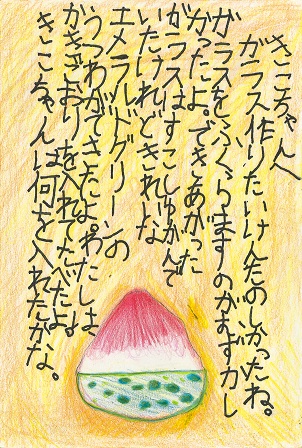 きこちゃんへ
ガラス作りたいけんたのしかったね。
ガラスをふくらますのがむずかし
かったよ。できあがった
ガラスはすこしゆがんで
いたけれどきれいな
エメラルドグリーンの
うつわができたよ。わたしは、
かきごおりを入れてたべたよ
きこちゃんは何を入れたかな。